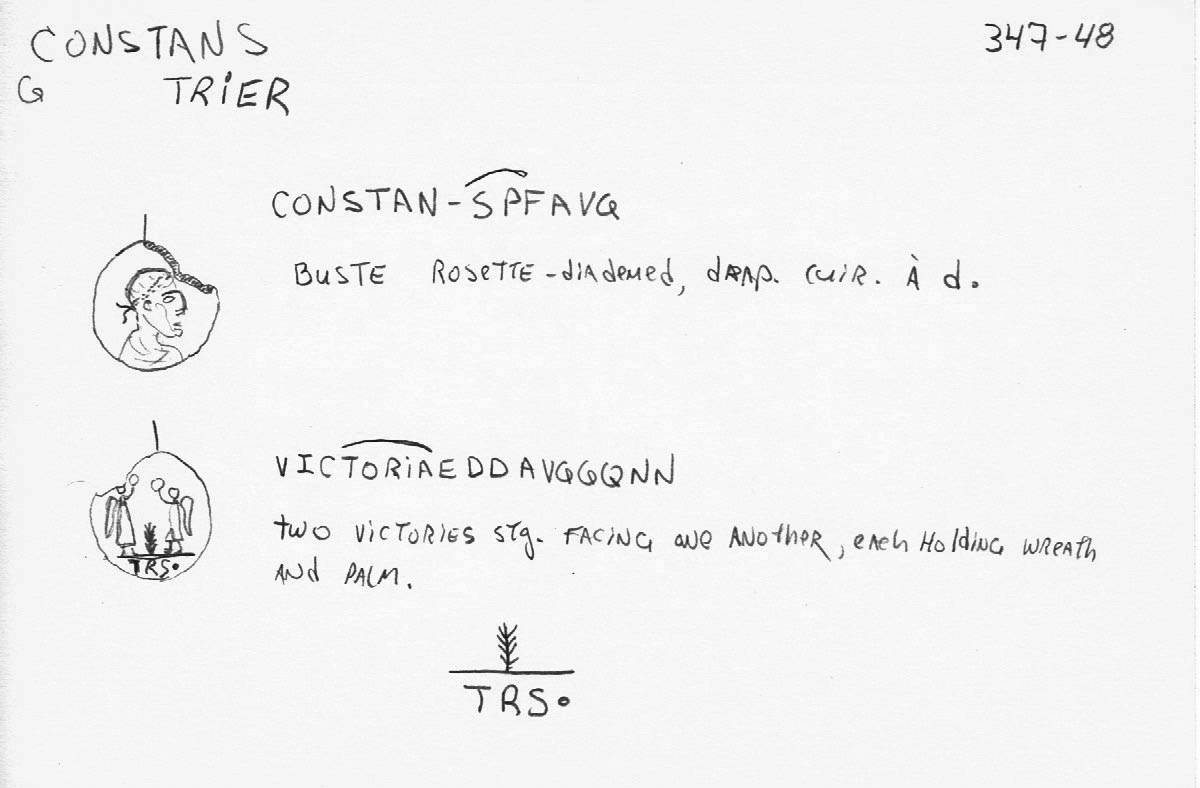 CONSTANS 347-48
G TRIER
CONSTAN-SPFAVG
BUSTE ROSETTE-diAdemed, dRAp. CUIR. À d.
VICTORIAEDDAVGGQNN
two VICTORIES STg. FACING ONE ANOTHER, EACH HOLDING WREATH
ANd PALM.
TRS•
TRS•